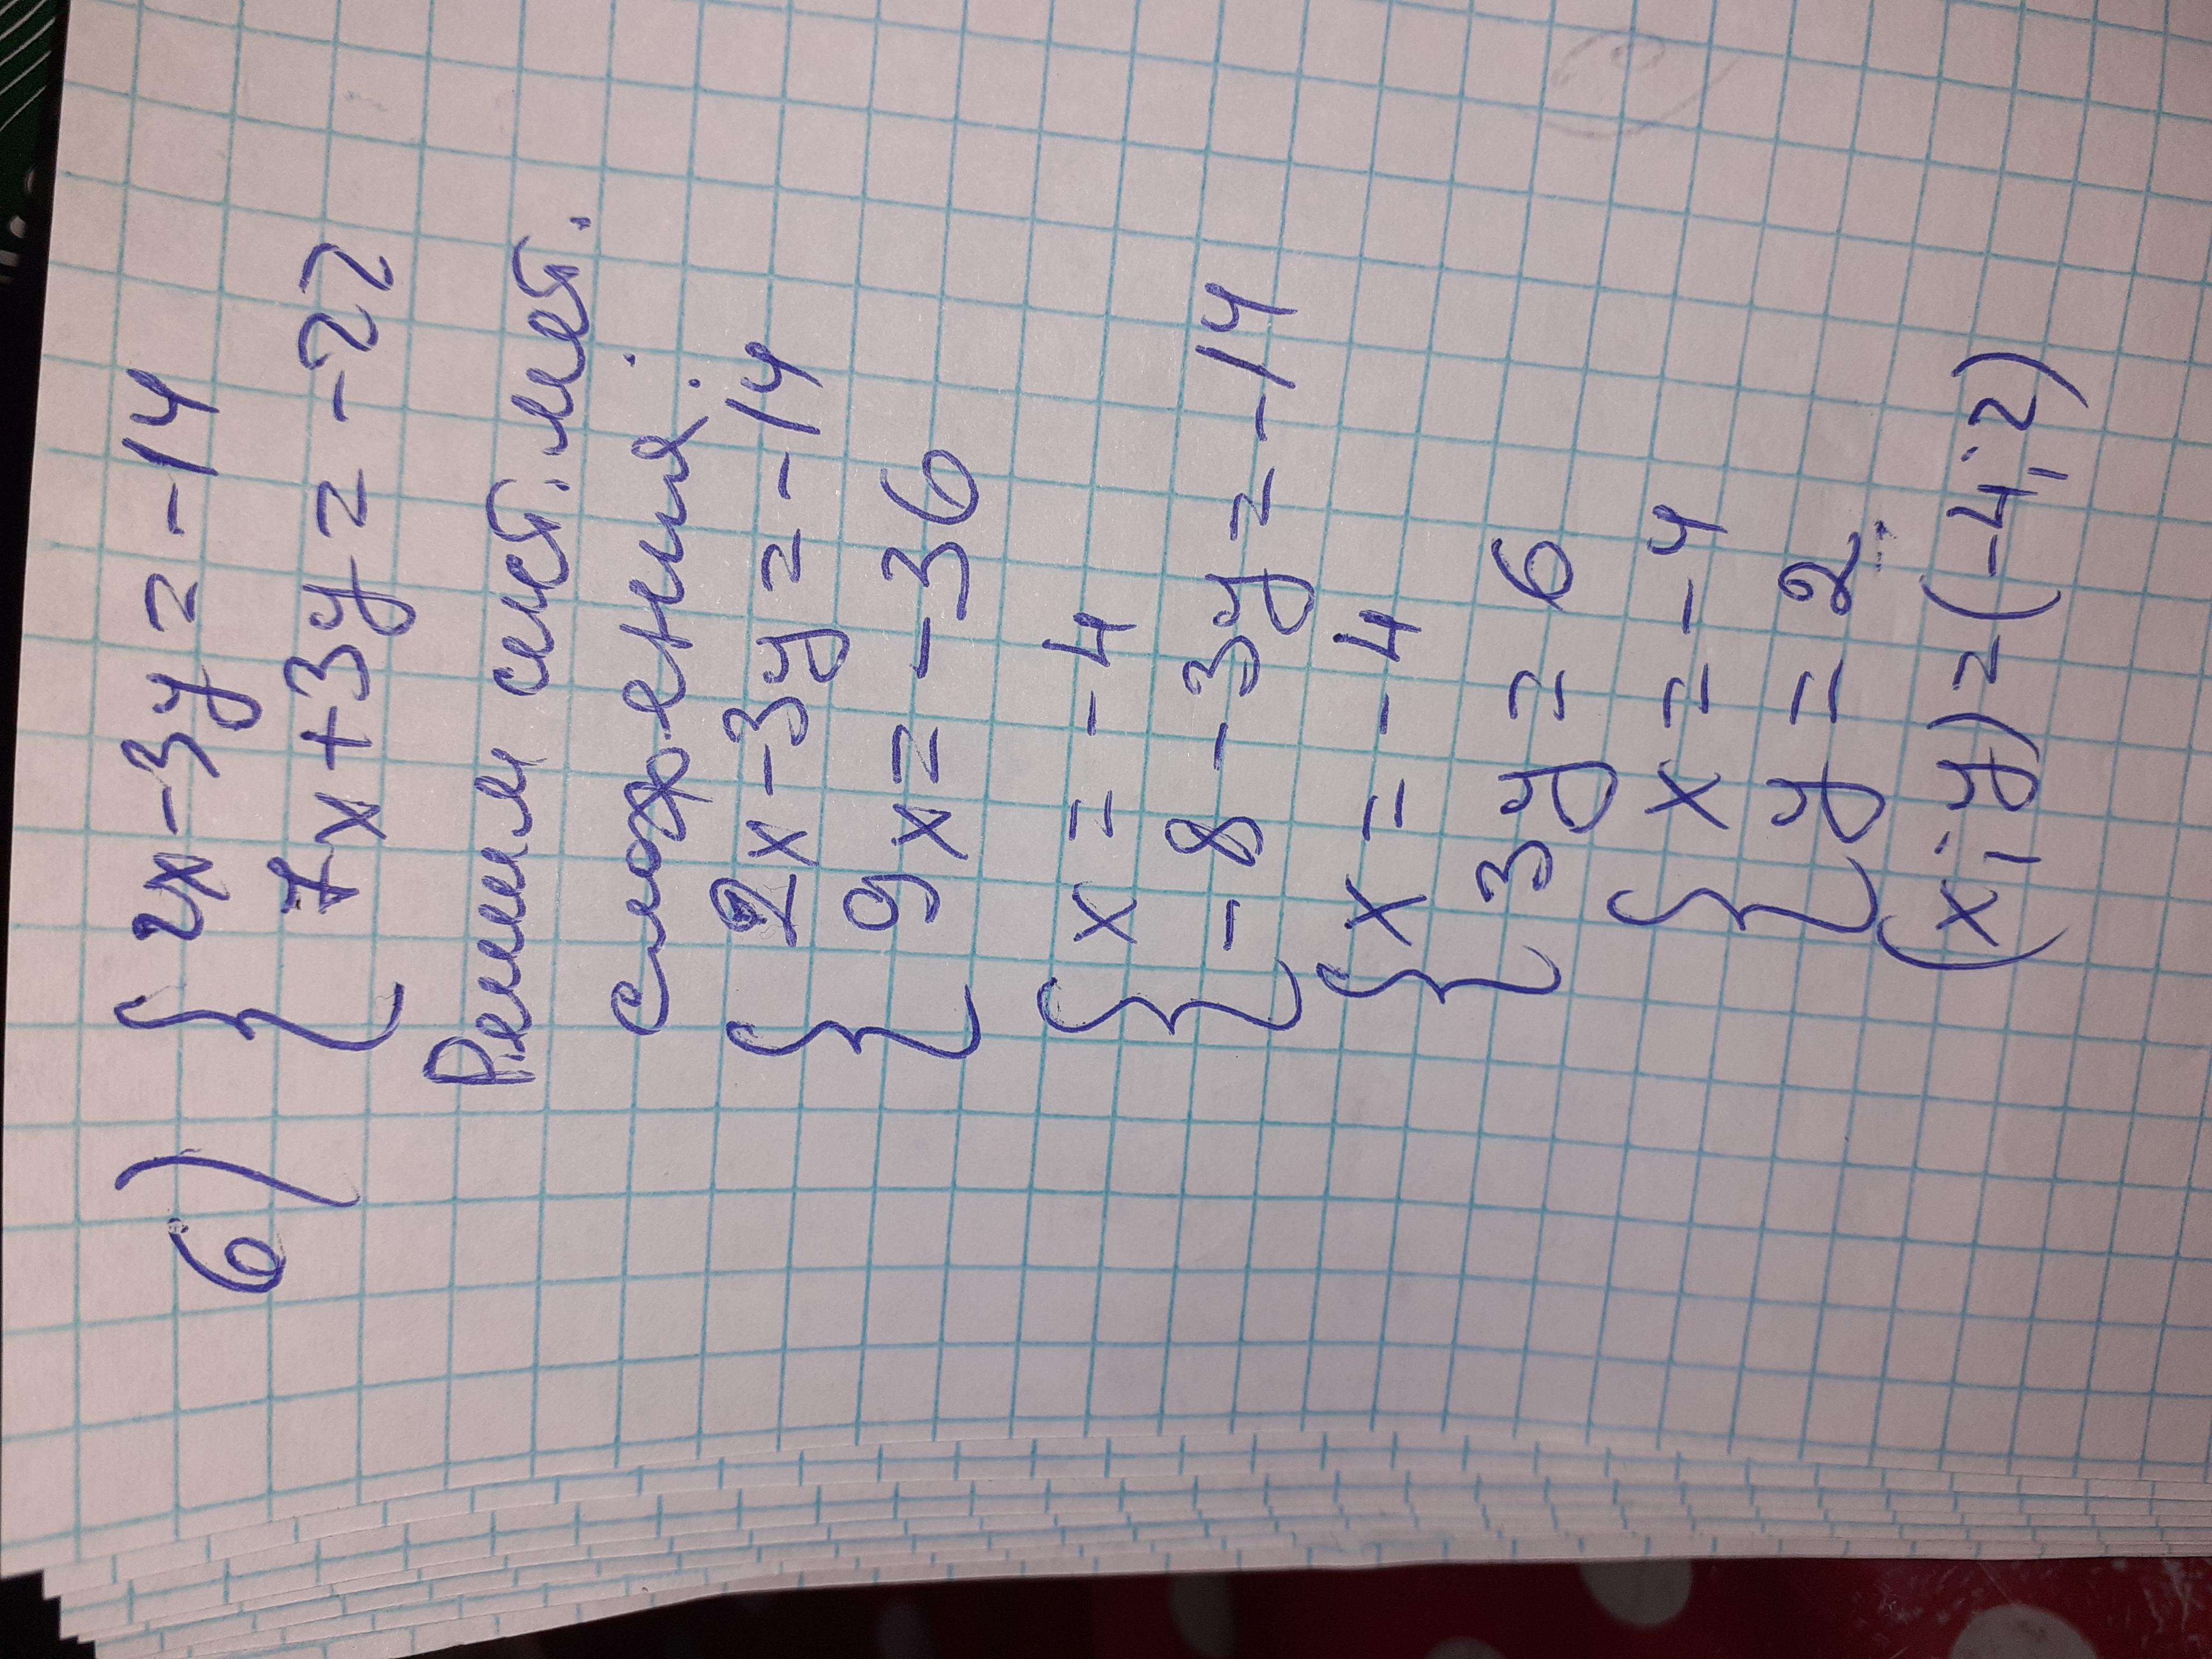 6) { 2x-3y=-14
7x+3y=-22
Решим сист. мет.
сложения:
{ 2x-3y=-14
9x=-36
{ x=-4
-8-3y=-14
{ x=-4
3y=6
{ x=-4
y=2
(x;y)=(-4;2)